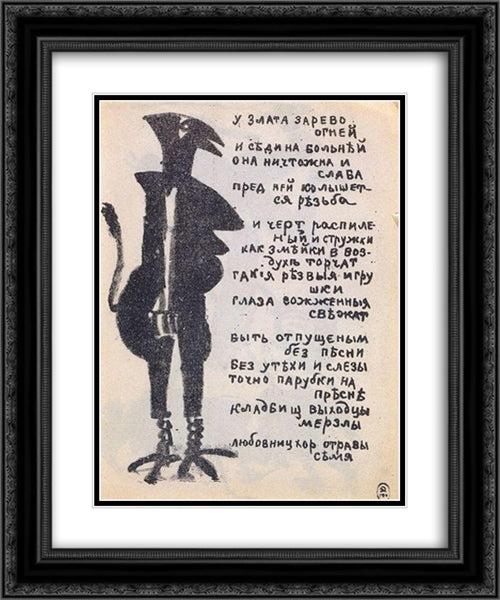 У ЗЛАТА ЗАРЕВО
ОГНЕЙ
И СѢДИНА БОЛЬНѢЙ
ОНА НИЧТОЖНА И
СЛАБА
ПРЕД НЕЙ КОЛЫШЕТ-
СЯ РѢЗЬБА
И ЧЕРТ РАСПИЛЕ-
НЫЙ И СТРУЖКИ
КАК ЗМѢЙКИ В ВОЗ-
ДУХѢ ТОРЧАТ
ТАКІЯ РѢЗВЫЯ ИГРУ
ШКИ
ГЛАЗА ВОЖЖЕННЫЯ
СВѢЖАТ
БЫТЬ ОТПУЩЕНЫМ
БЕЗ ПѢСНИ
БЕЗ УТѢХИ И СЛЕЗЫ
ТОЧНО ПАРУБКИ НА
ПРѢСНѢ
КЛАДБИЩ ВЫХОДЦЫ
МЕРЗЛЫ
ЛЮБОВНИЦ ХОР ОТРАВЫ
СѢМЯ